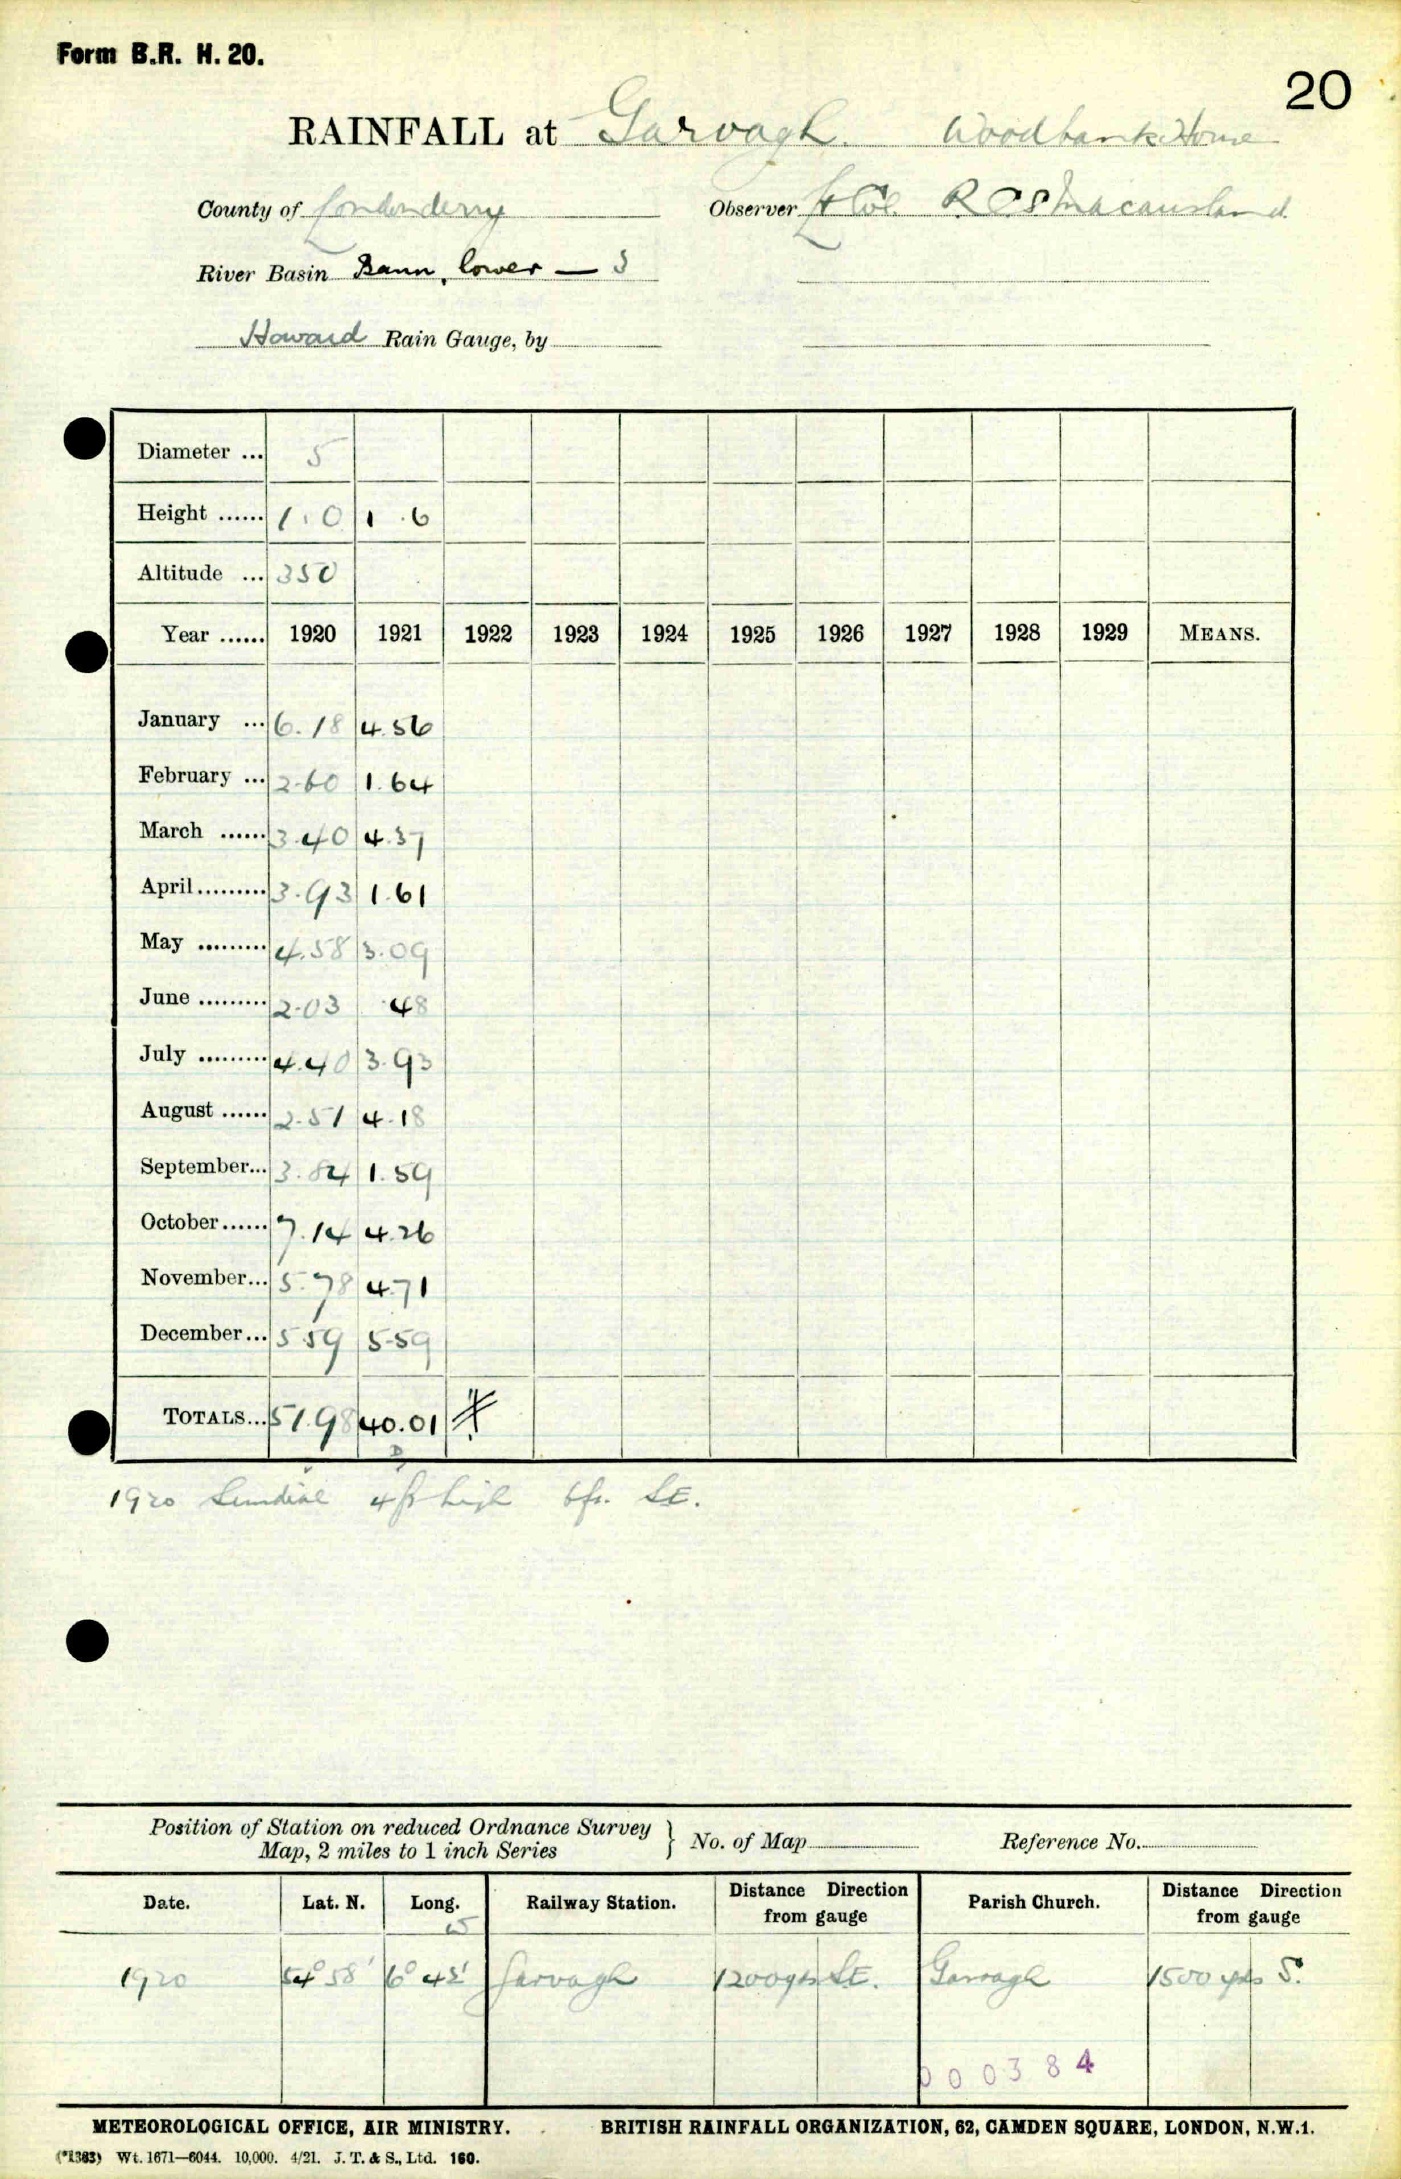 Form B.R. H. 20.
20
RAINFALL at Garvagh. Woodbank House
County of Londonderry Observer Lt Col. R C S Macausland.
River Basin Bann, lower — 3
Howard Rain Gauge, by
Diameter ... 5
Height ...... 1.0 1 .6
Altitude ... 350
Year ...... 1920 1921 1922 1923 1924 1925 1926 1927 1928 1929 MEANS.
January ... 6.18 4.56
February ... 2.60 1.64
March ...... 3.40 4.37
April......... 3.93 1.61
May ......... 4.58 3.09
June ......... 2.03 .48
July ......... 4.40 3.93
August ...... 2.51 4.18
September... 3.84 1.59
October...... 7.14 4.26
November... 5.78 4.71
December... 5.59 5.59
TOTALS... 51.98 40.01
1920 Sundial 4ft high 6ft. SE.
Position of Station on reduced Ordnance Survey
Map, 2 miles to 1 inch Series } No. of Map Reference No.
Date. Lat. N. Long. W Railway Station. Distance Direction from gauge Parish Church. Distance Direction from gauge
1920 54° 58' 6° 42' Garvagh 1200yds SE. Garvagh 1500 yds S.
000384
METEOROLOGICAL OFFICE, AIR MINISTRY. BRITISH RAINFALL ORGANIZATION, 62, CAMDEN SQUARE, LONDON, N.W.1.
(*1383) Wt. 1671—6044. 10,000. 4/21. J. T. & S., Ltd. 160.